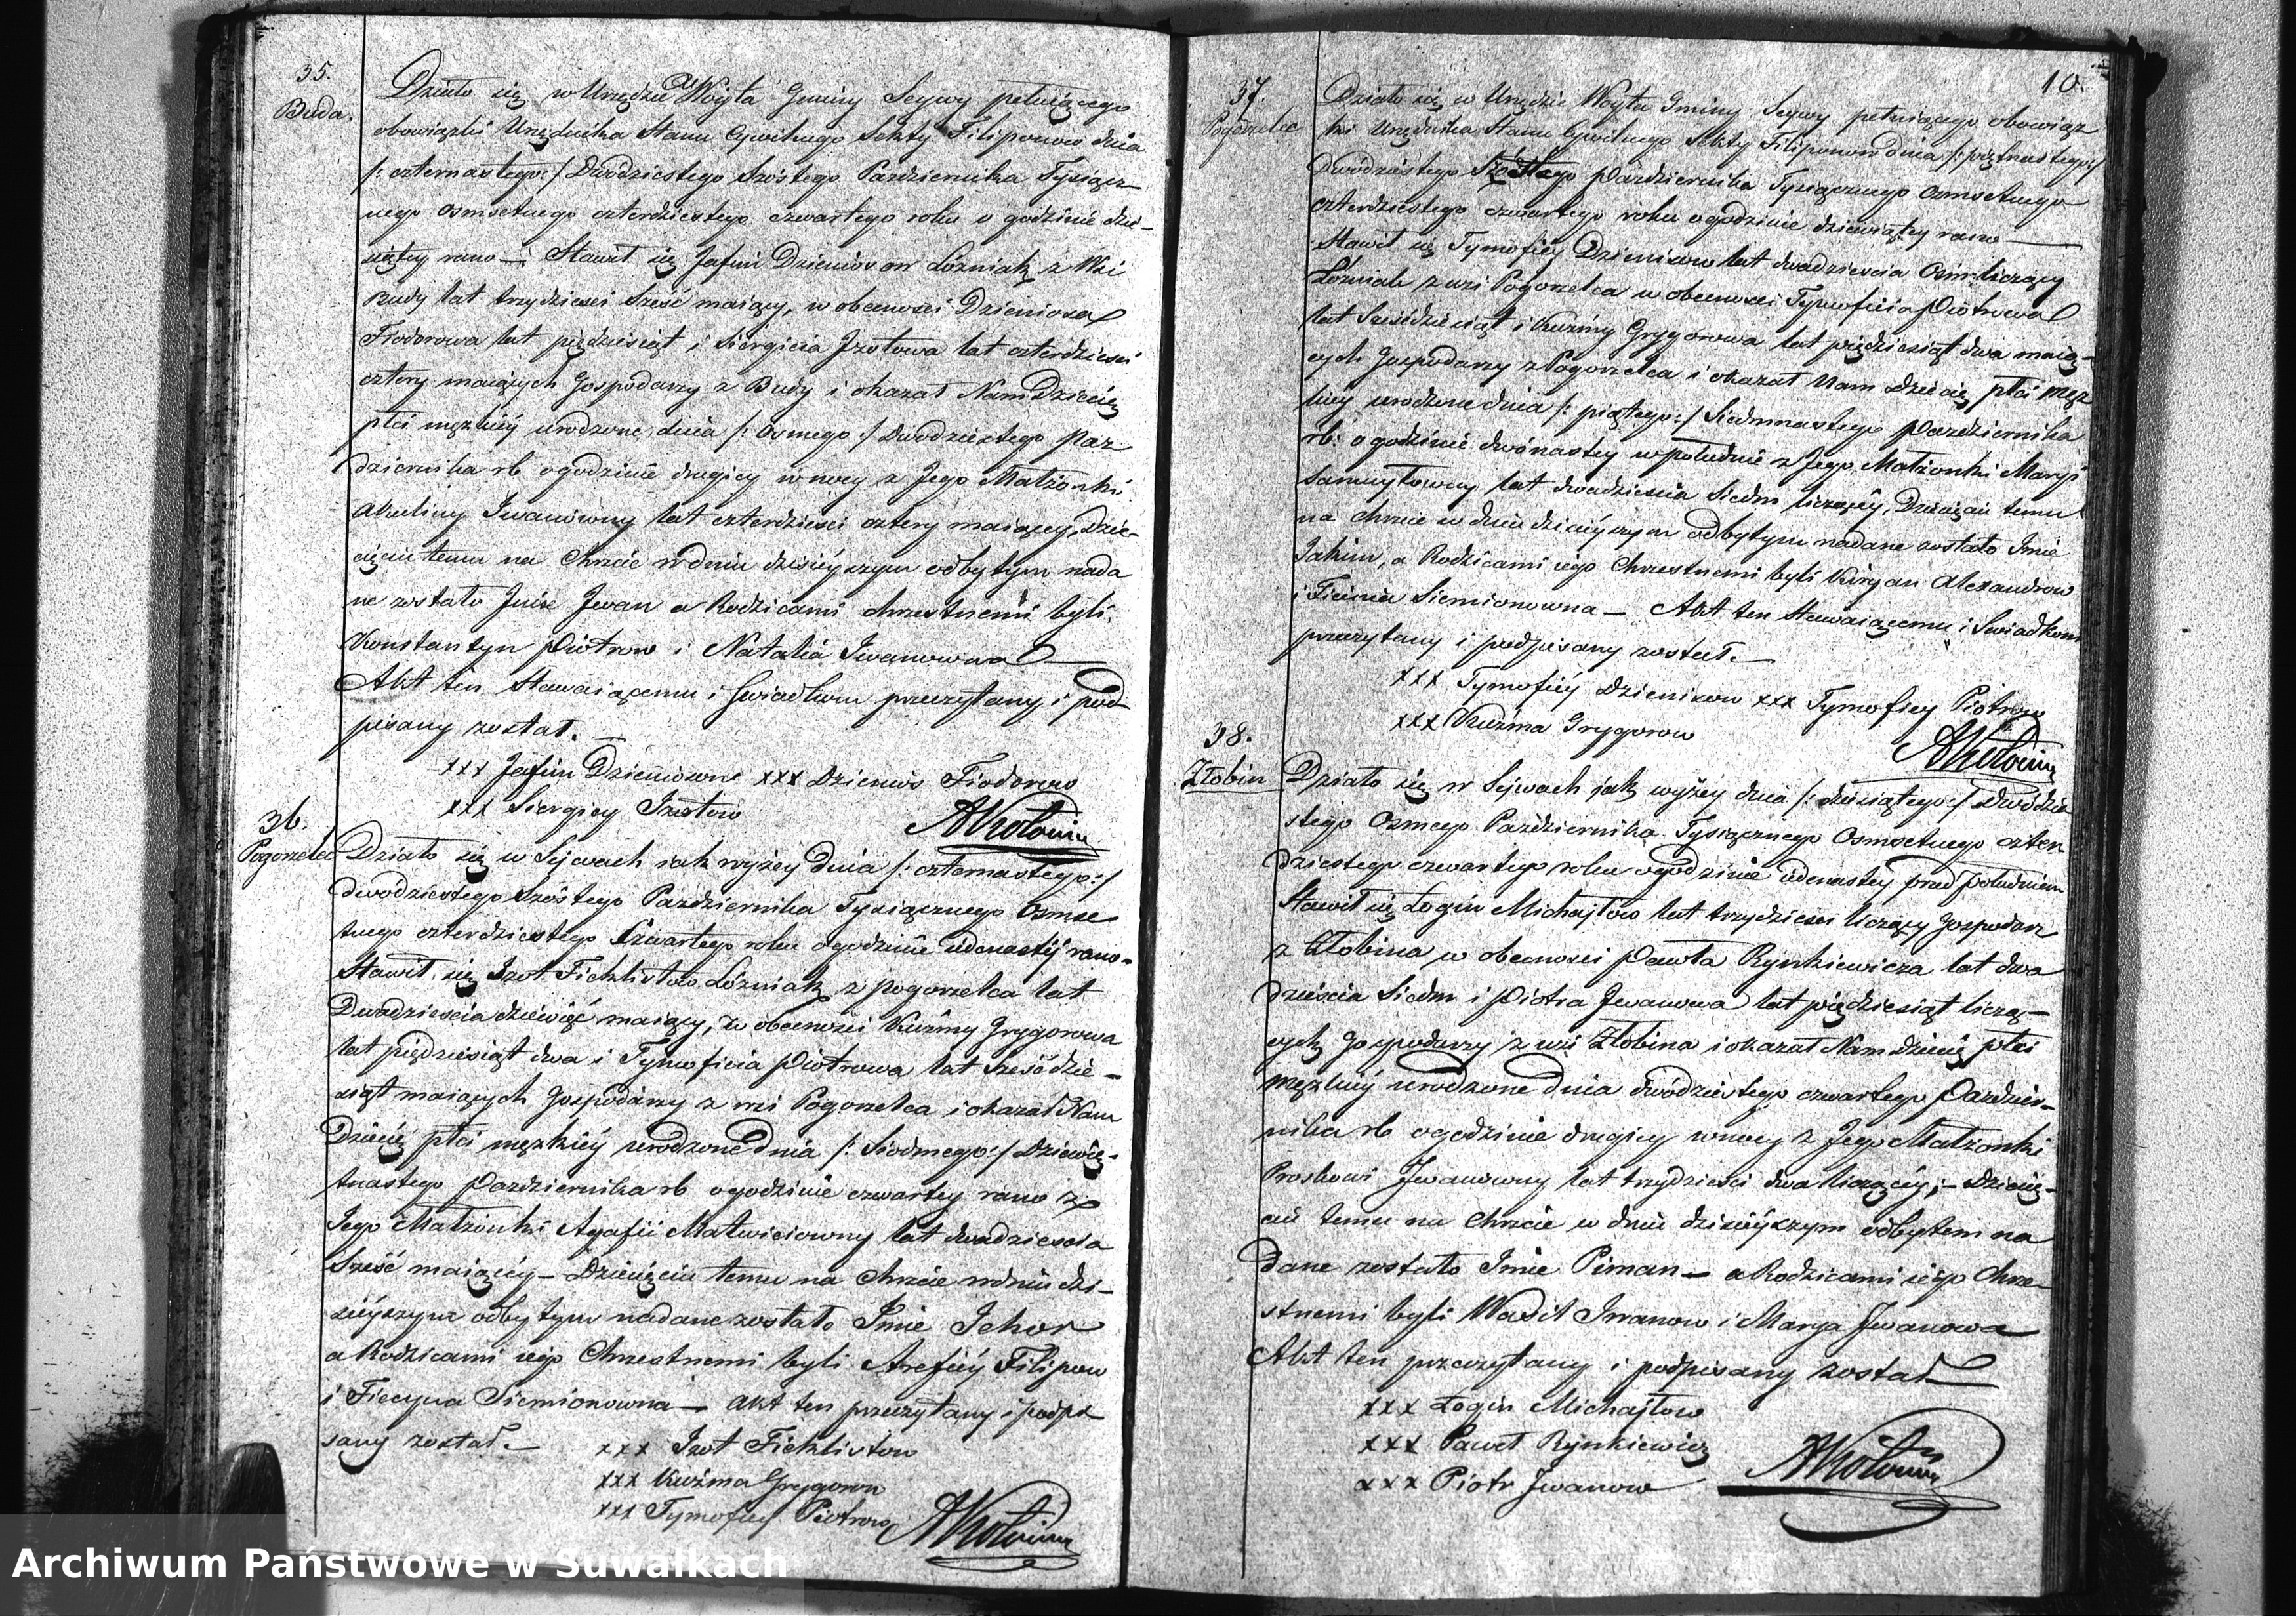 35.
Buda.
Działo się w Urzędzie Woyta Gminy Seywy pełniącego
obowiązki Urzędnika Stanu Cywilnego Sekty Filiponow dnia
/: czternastego :/ Dwódziestego Szóstego Pazdziernika Tysiącz-
nego osmsetnego czterdziestego czwartego roku o godzinie dzie-
siątey rano — Stawił się Jafim Dzieniosow Lóźniak z Wsi
Budy lat trzydzieści sześć maiący, w obecności Dzieniosa
Fiodorowa lat pięćdziesiąt i Siergieia Izotowa lat czterdzieści
cztery maiących Gospodarzy z Budy i okazał Nam Dziecię
płci męzkiéy urodzone dnia /: osmego :/ dwódziestego Paz
dziernika rb o godzinie drugiey w nocy z Jego Małżonki
Akuliny Iwanówny lat czterdzieści cztery maiącey, Dzie-
cięciu temu na Chrzcie w dniu dzisieyszym odbytym nada
ne zostało Imie Jwan a Rodzicami chrzestnemi byli
Konstantyn Piotrow i Natalia Iwanowna —
Akt ten Stawaiącemu i Swiadkom przeczytany i pod
pisany został. —
xxx Jafim Dzieniosow xxx Dzienios Fiodorow
xxx Siergiey Izotow
36.
Pogorzelec
Działo się w Sejwach jak wyżey Dnia /: czternastego :/
dwódziestego Szóstego Pazdziernika Tysiącznego Osmse
tnego czterdziestego Czwartego roku o godzinie iedenastéy rano-
Stawił się Izot Fichlistow Lóźniak z pogorzelca lat
Dwadzieścia dziewięć maiący, w obecności Kuźmy Grygorowa
lat pięćdziesiąt dwa i Tymofieia Piotrowa lat sześćdzie-
siąt maiących Gospodarzy z wsi Pogorzelca i okazał Nam
Dziecię płci męzkiéy urodzone dnia /: Siodmego :/ Dziewię-
tnastego Pazdziernika rb o godzinie czwartey rano z
Jego Małżonki Agafii Matwieiowny lat dwadzieścia
Sześć maiącéy — Dziecięciu temu na Chrzcie w dniu dzi-
sieyszym odbytym nadane zostało Imie Jehor
a Rodzicami iego Chrzestnemi byli Arefiéy Filipow
i Siemionowna — Akt ten przeczytany i podpi
sany został. —
xxx Izot Fichlistow
xxx Kuźma Grygorow
xxx Tymofiey Piotrow
10.
37.
Pogorzelec
Działo się w Urzędzie Woyta Gminy Seywy pełniącego obowiąz
ki Urzędnika Stanu Cywilnego Sekty Filiponow dnia /: piętnastego :/
Dwódziestego Szóstego Pazdziernika Tysiącznego Osmsetnego
czterdziestego czwartego roku o godzinie dziewiątey rano —
Stawił się Tymofiéy Dzienisow lat dwadzieścia Osm liczący
Lóźniak z wsi Pogorzelca w obecności Tymofieia Piotrowa
lat Sześćdziesiąt i Kuźmy Grygorowa lat pięćdziesiąt dwa maią-
cych Gospodarzy z Pogorzelca i okazał Nam Dziecię płci męz
kiey urodzone dnia /: piątego :/ Siedmnastego Pazdziernika
rb: o godzinie dwónastey w południe z Jego Małżonki Maryi
Samuyłowny lat dwadzieścia Siedm liczącéy, Dziecięciu temu
na chrzcie w dniu dzisieyszym odbytym nadane zostało Imie
Jakim, a Rodzicami iego Chrzestnemi byli Kiryan Alexandrow
i Siemionowna — Akt ten Stawaiącemu i Swiadkom
przeczytany i podpisany został. —
xxx Tymofiéy Dzienisow xxx Tymofiey Piotrow
xxx Kuźma Grygorow
38.
Złobin
Działo się w Sejwach jak wyżey dnia /: dziesiątego :/ dwódzie
stego Osmego Pazdziernika Tysiącznego Osmsetnego czter
dziestego czwartego roku o godzinie iedenastéy przed południem
Stawił się Łogin Michajłow lat trzydzieści liczący Gospodarz
z Złobina w obecności Pawła Rynkiewicza lat dwa
dzieścia Siedm i Piotra Jwanowa lat pięćdziesiąt liczą-
cych Gospodarzy z wsi Złobina i okazał Nam dziecię płci
męzkiéy urodzone dnia dwódziestego czwartego Pazdzier-
nika rb o godzinie drugiey w nocy z Jego Małżonki
Proskowi Jwanówny lat trzydzieści dwa liczącéy; — Dziecię-
ciu temu na Chrzcie w dniu dzisiéyszym odbytem na
dane zostało Imie Piman — a Rodzicami iego Chrze-
stnemi byli Wasil Iwanow i Marya Jwanowa
Akt ten przeczytany i podpisany został
xxx Łogin Michajłow
xxx Paweł Rynkiewicz
xxx Piotr Jwanow
Archiwum Państwowe w Suwałkach